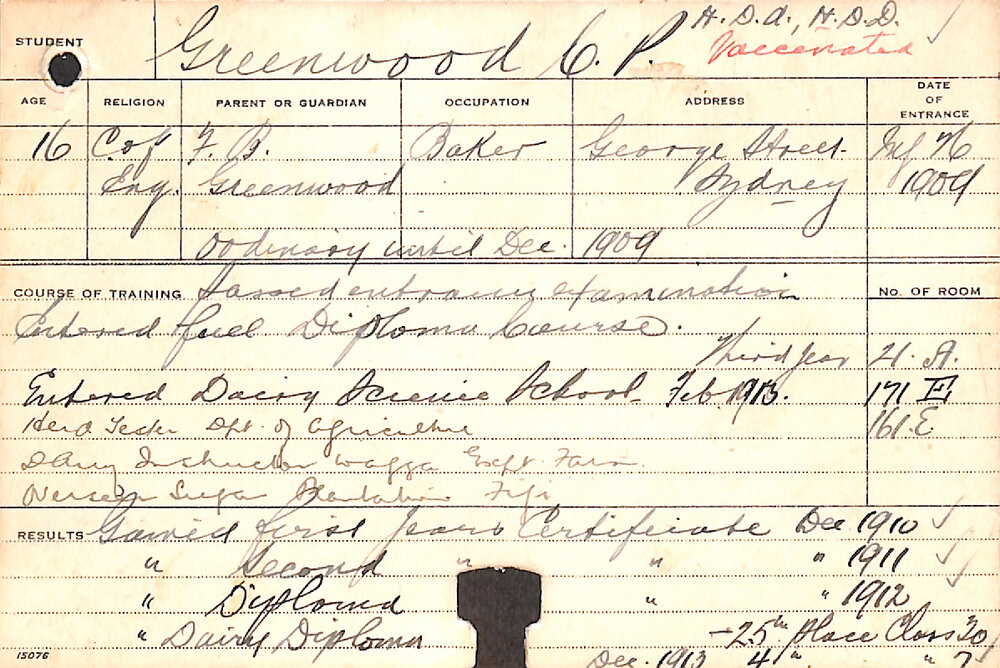 STUDENT Greenwood C. P. H.D.A., H.D.D.
Vaccinated
AGE RELIGION PARENT OR GUARDIAN OCCUPATION ADDRESS DATE OF ENTRANCE
16 C of F. B. Baker George Street
Eng. Greenwood Sydney 1909
Ordinary until Dec. 1909
COURSE OF TRAINING Passed entrance examination No. OF ROOM
Entered full Diploma Course.
Third Year 21. A.
Entered Dairy Science School Feb 1913. 171 E
Herd Tester Dpt. of Agriculture 161. E.
Dairy Instructor Wagga Expt. Farm
Overseer Sugar Plantation Fiji
RESULTS Gained first years Certificate Dec 1910
" Second " " " 1911
" Diploma " " 1912
" Dairy Diploma - 25th Place Class 30
Dec. 1913 4th " " 7
15076